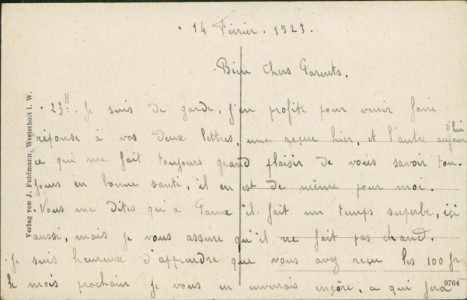 14 Février. 1923.
Bien Chers Parents.
23h. Je suis de garde, j'en profite pour venir faire
réponse à vos deux lettres, une reçue hier, et l'autre
ce qui me fait toujours grand plaisir de vous savoir tou-
jours en bonne santé, il en est de même pour moi.
Vous me dites qu'à Paroux il fait un temps superbe, ici
aussi, mais je vous assure qu'il ne fait pas chaud.
Je suis heureux d'apprendre que vous avez reçu les 100 fr
le mois prochain je vous en enverrais encore, ce qui fera
Verlag von J. Pohlmann, Westerholt i. W.
9764